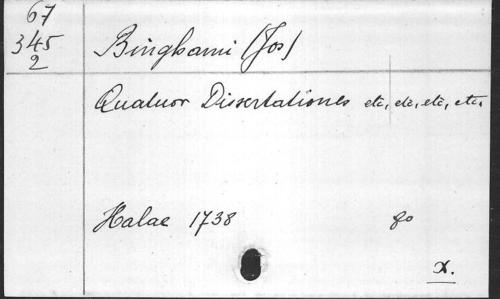 67
345
2
Binghami (Jos)
Quatuor Dissertationes etc, etc, etc, etc.
Halae 1738
X.